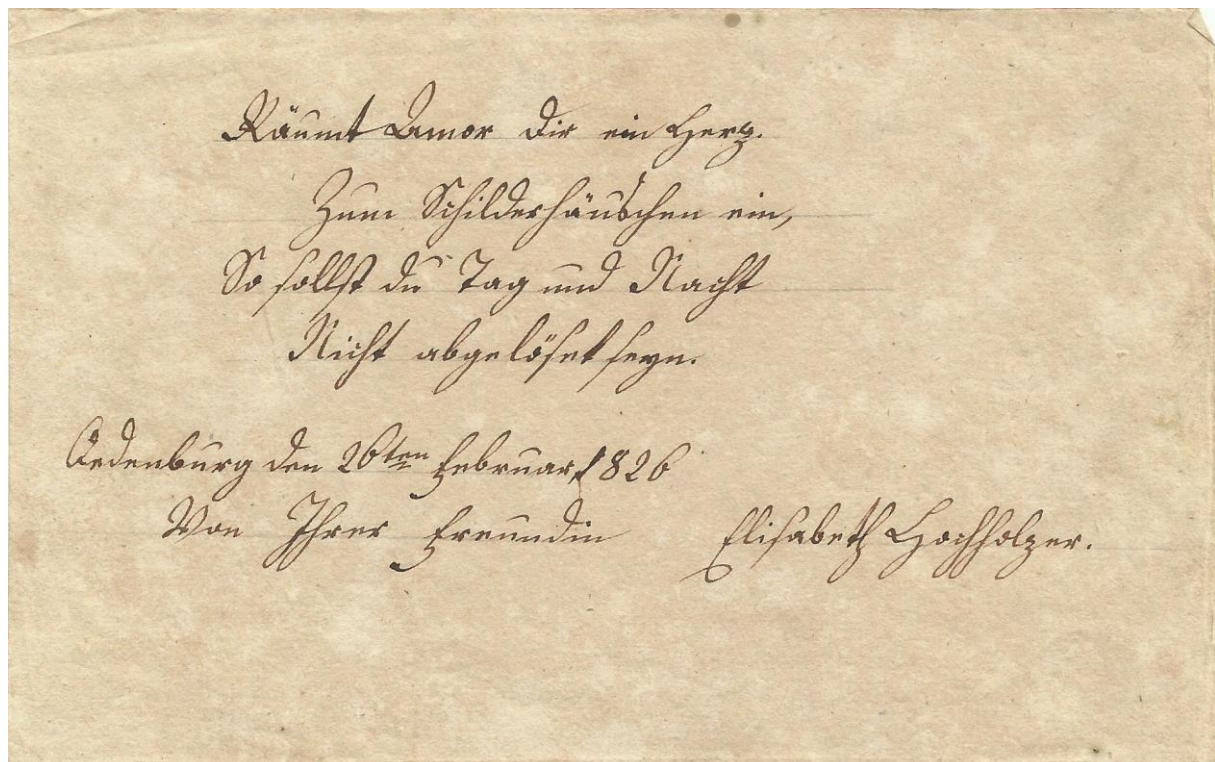 Räumt Amor dir ein Herz.
Zum Schilderhäuschen ein,
So sollst du Tag und Nacht
Nicht abgelöset seyn.
Oedenburg den 26ten Februar 1826
Von Ihrer Freundin Elisabeth Hochholzer.